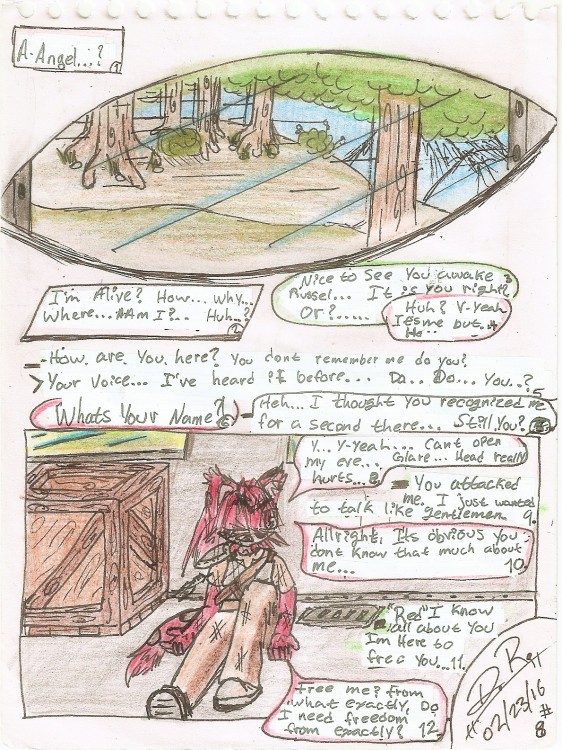 A-Angel...?
1
Nice to See You awake 3
Russel... It is you right?
Or?.....
Huh? Y-Yeah
Its me but. 4
I'm Alive? How... Why...
Where... Am I?.. Huh..?
2
- How are You here? You dont remember me do you?
> Your voice... I've heard it before... Do.. Do... You..? 5
Whats Your Name? 6
Heh... I thought you recognized me
for a second there... Still, You?
Y... Y-Yeah... Cant open
my eye... Glare... Head really
hurts... 8
- You attacked
me. I just wanted
to talk like gentlemen 9.
Allright, It's obvious you
dont know that much about
me... 10.
"Red" I know
all about you
Im Here to
free You... 11.
free me? from
what exactly, Do
I need freedom
from exactly? 12.
02/23/16
#
8